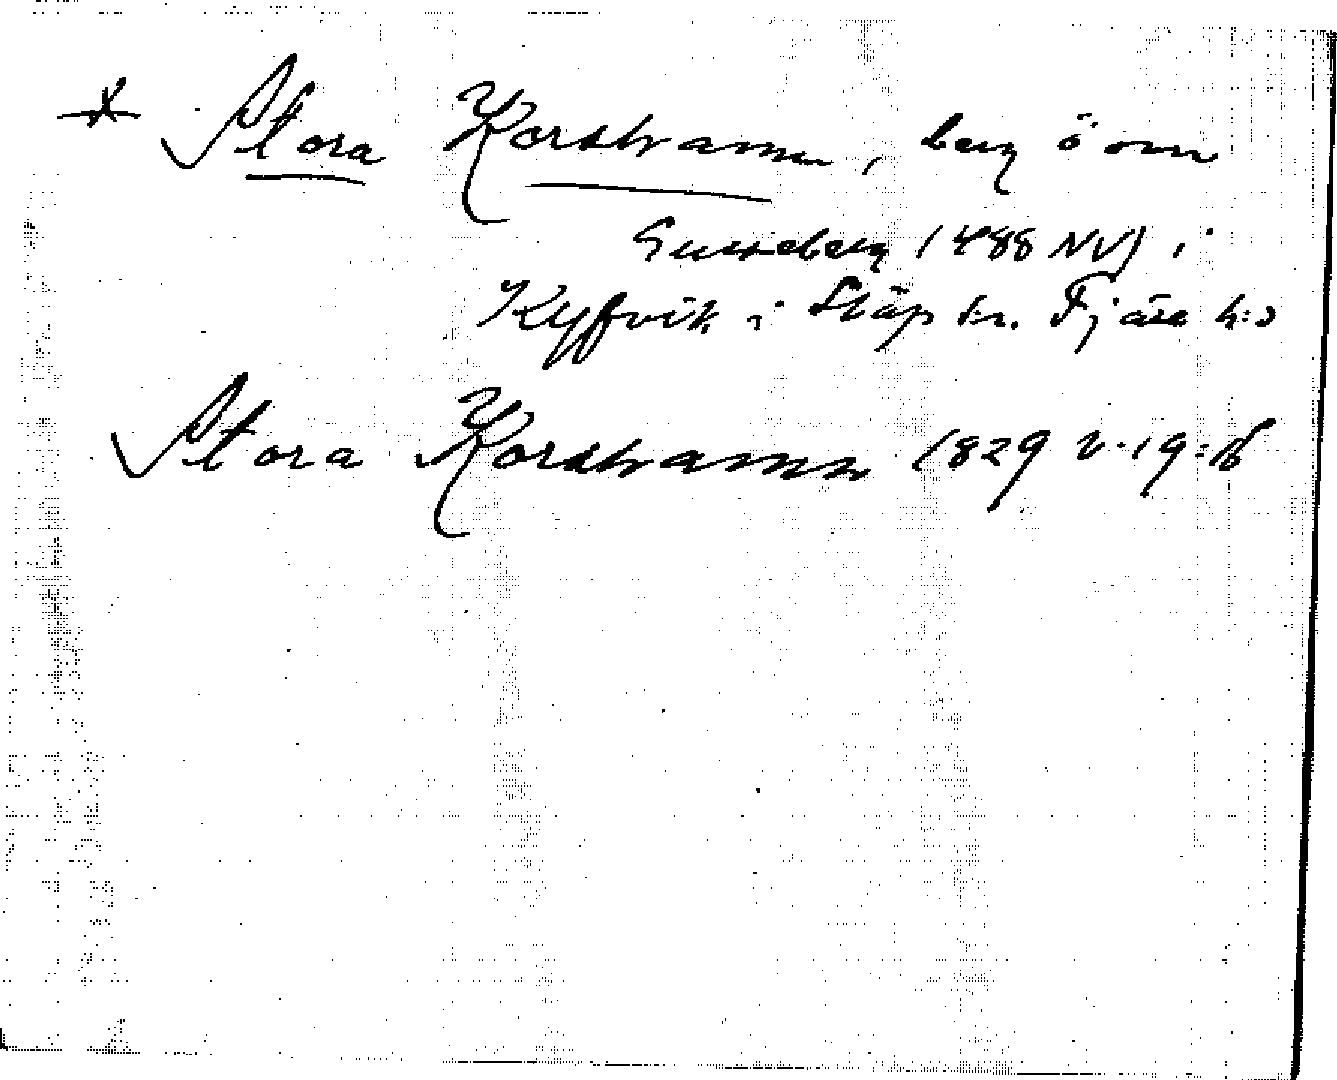 * Stora Korshamn, berg ö om
Gunneberg (488 NV) i
Kyfvik i Släp sn. Fjäre h:d
Stora Korshamn 1829 v. 19:16